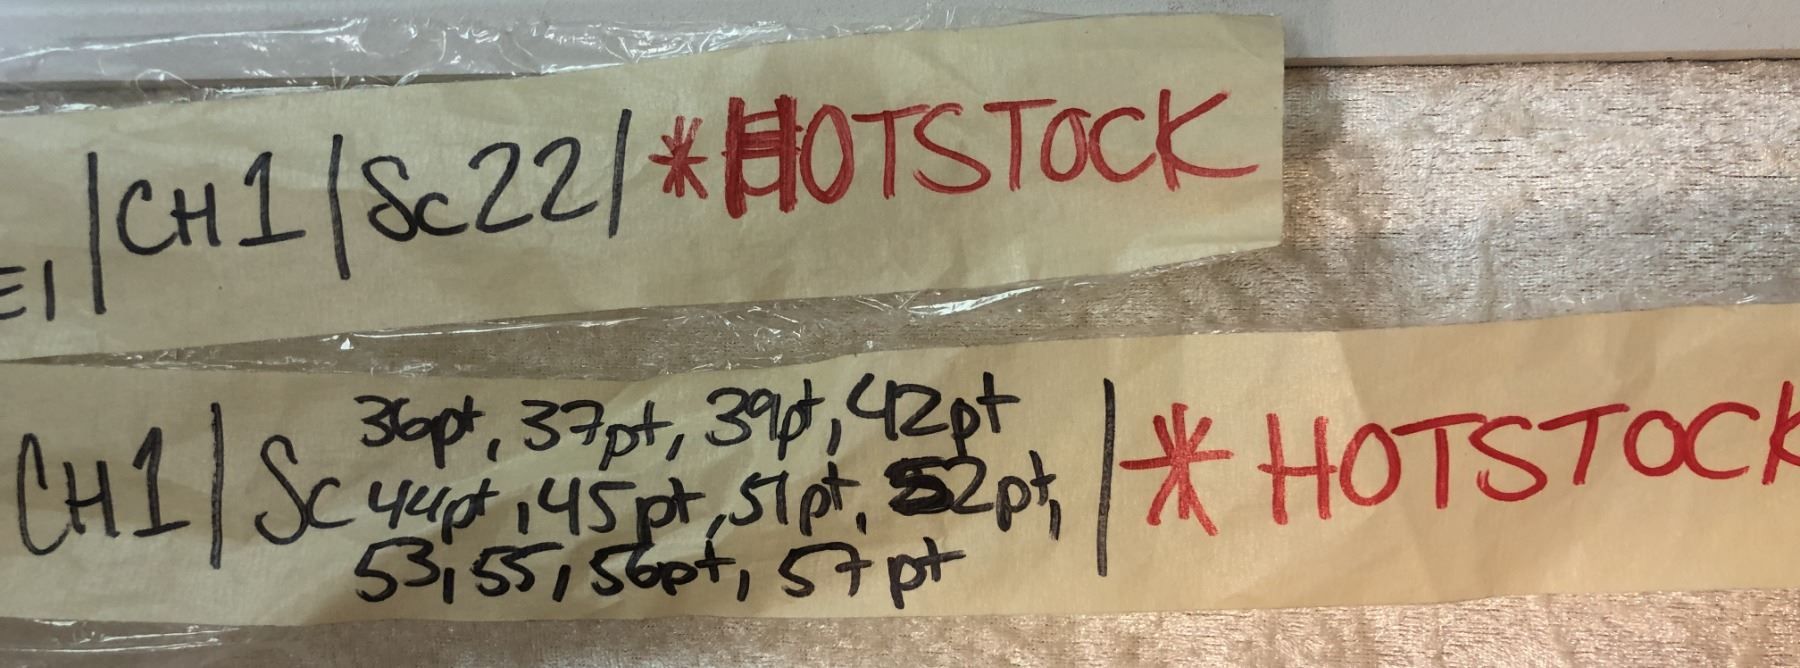 E1 | CH1 | Sc22 | *HOTSTOCK
CH1 | Sc 36pt, 37pt, 39pt, 42pt
44pt, 45pt, 51pt, 52pt,
53, 55, 56pt, 57pt | * HOTSTOCK